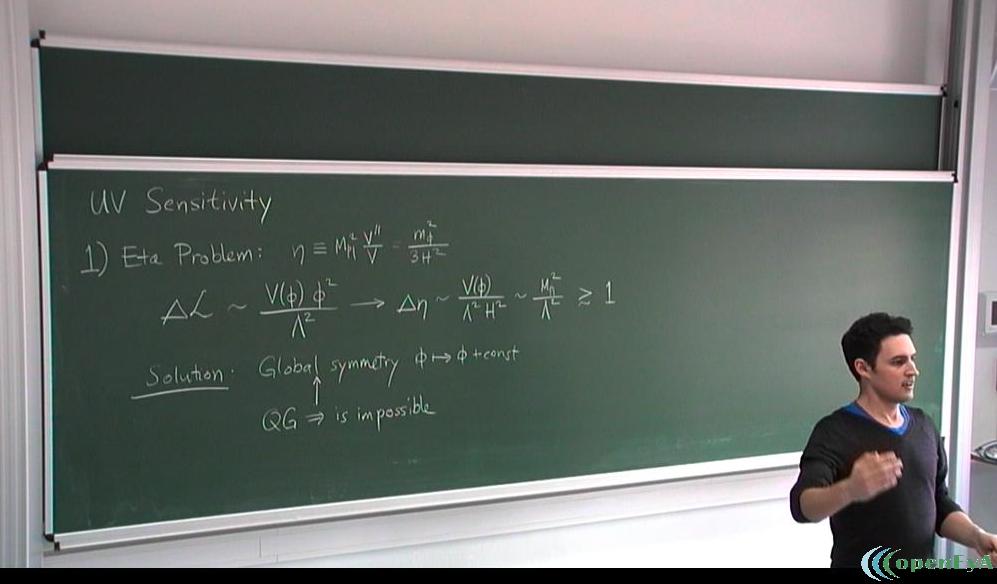 UV Sensitivity
1) Eta Problem: η ≡ M_Pl² V''/V = m_ϕ²/3H²
Δℒ ~ V(ϕ) ϕ²/Λ² → Δη ~ V(ϕ)/Λ² H² ~ M_Pl²/Λ² ≳ 1
Solution: Global symmetry ϕ ↦ ϕ + const
↑
QG ⇒ is impossible
openEyA